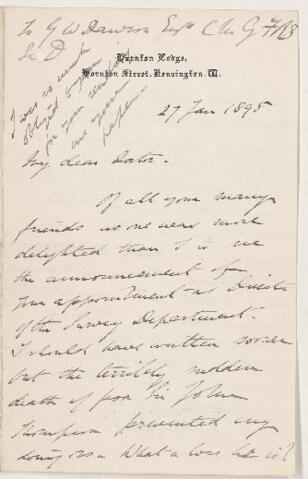 To G W Dawson Esqre C M G F R S
LL D
Hornton Lodge,
Hornton Street, Kensington, W.
I was so much
obliged to you
for your sending
me your
paper
27 Jan 1895
My dear Doctor.
Of all your many
friends no one was more
delighted than I to see
the announcement of
your appointment as Director
of the Survey Department.
I should have written sooner
but the terribly sudden
death of poor Sir John
Thompson prevented my
doing so. What a loss he is!